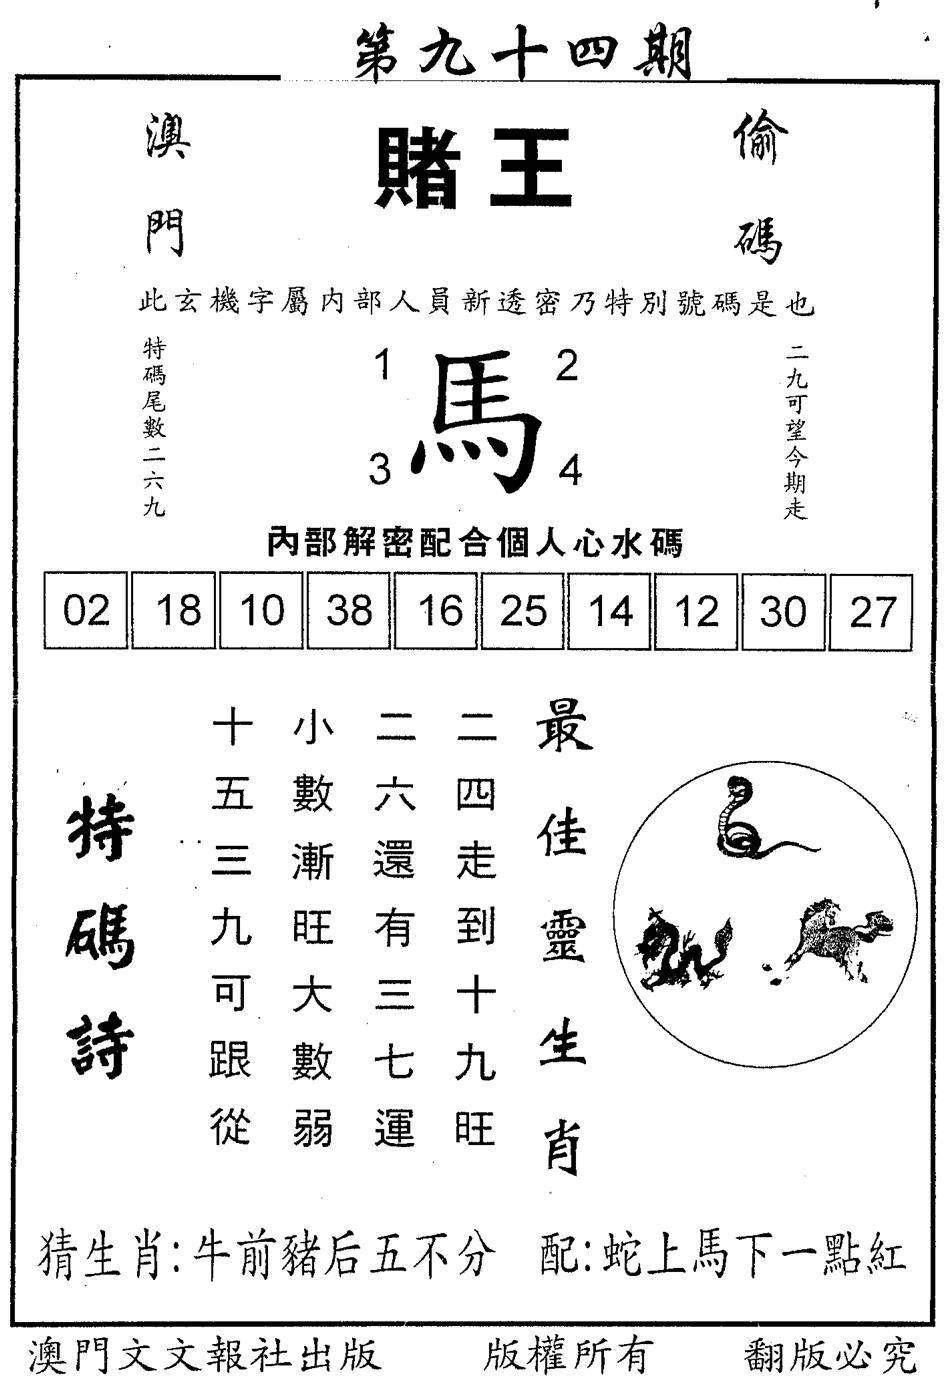 第九十四期
澳門
賭王
偷碼
此玄機字屬内部人員新透密乃特別號碼是也
特碼尾數二六九
1
2
馬
3
4
二九可望今期走
內部解密配合個人心水碼
02 18 10 38 16 25 14 12 30 27
最佳靈生肖
二四走到十九旺
二六還有三七運
小數漸旺大數弱
十五三九可跟從
特碼詩
猜生肖:牛前豬后五不分 配:蛇上馬下一點紅
澳門文文報社出版 版權所有 翻版必究